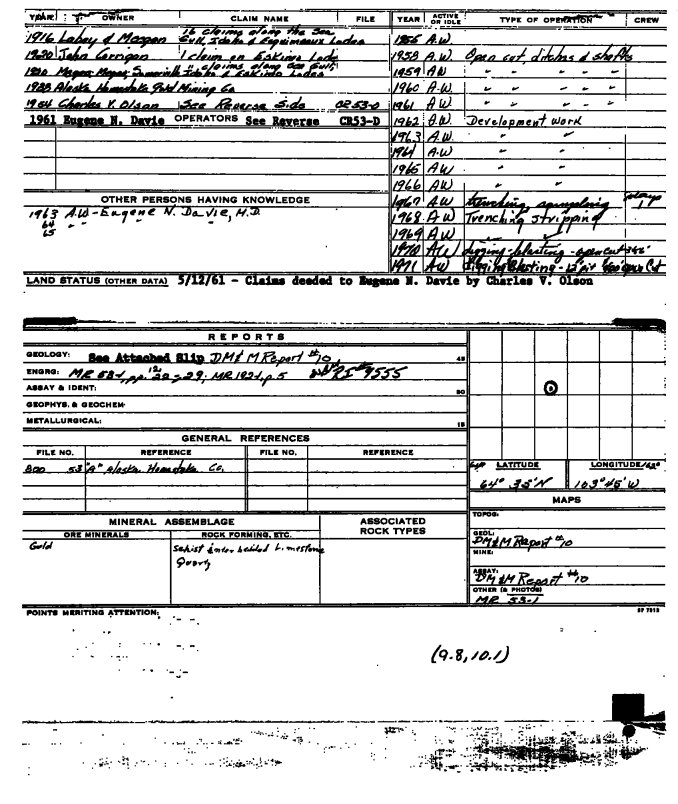 YEAR OWNER CLAIM NAME FILE YEAR ACTIVE OR IDLE TYPE OF OPERATION CREW
16 claims along the Sea
1916 Lahey & Morgan Gull, Idaho & Esquimeaux Lodes
1955 A.W.
1920 John Corrigan 1 claim on Eskimo Lode
1958 A.W. Open cut, ditches & shafts
11 claims along Sea Gull,
1920 Idaho & Eskimo Lodes
1959 AW " " " "
1928 Alaska Homestake Gold Mining Co
1960 A.W. " " " "
1954 Charles V. Olson See Reverse Side CR 53-D
1961 A.W. " " " "
1961 Eugene N. Davie OPERATORS See Reverse CR53-D
1962 A.W. Development work
1963 A.W. " "
1964 A.W. " "
1965 A.W. " "
1966 A.W. " "
OTHER PERSONS HAVING KNOWLEDGE
1967 A.W. trenching, sampling
1963 A.W. - Eugene N. Davie, M.D.
64 " "
65
1968 A.W. Trenching stripping
1969 A.W.
1970 AW digging-blasting-opencut
1971 AW digging blasting - open cut
LAND STATUS (OTHER DATA) 5/12/61 - Claims deeded to Eugene N. Davie by Charles V. Olson
REPORTS
GEOLOGY: See Attached Slip DM&M Report #10, 45
ENGRG: MR 58-1, pp. 20-29; MR 192-1, p.5 RI #7555
ASSAY & IDENT: 30
GEOPHYS. & GEOCHEM.
METALLURGICAL: 15
GENERAL REFERENCES
FILE NO. REFERENCE FILE NO. REFERENCE
800 53 "A" Alaska Homestake Co.
LATITUDE LONGITUDE
64° 35'N 163° 45'W
MAPS
MINERAL ASSEMBLAGE ASSOCIATED ROCK TYPES
ORE MINERALS ROCK FORMING, ETC.
TOPOG:
Gold Schist interbedded Limestone
Quartz
GEOL: DM&M Report #10
MINE:
ASSAY: DM&M Report #10
OTHER (& PHOTOS) MR 53-1
POINTS MERITING ATTENTION:
SP 7913
(9.8, 10.1)